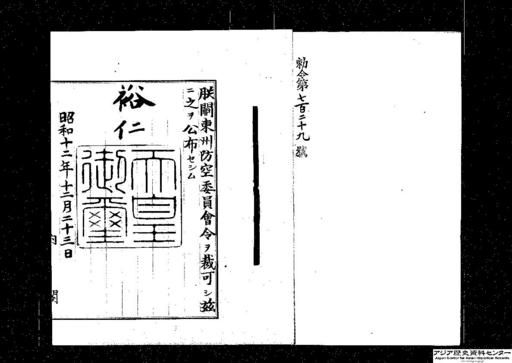 勅令第七百二十九號
朕關東州防空委員會令ヲ裁可シ茲
ニ之ヲ公布セシム
裕仁
天皇
御璽
昭和十二年十二月二十三日
内
閣
アジア歴史資料センター
Japan Center for Asian Historical Records